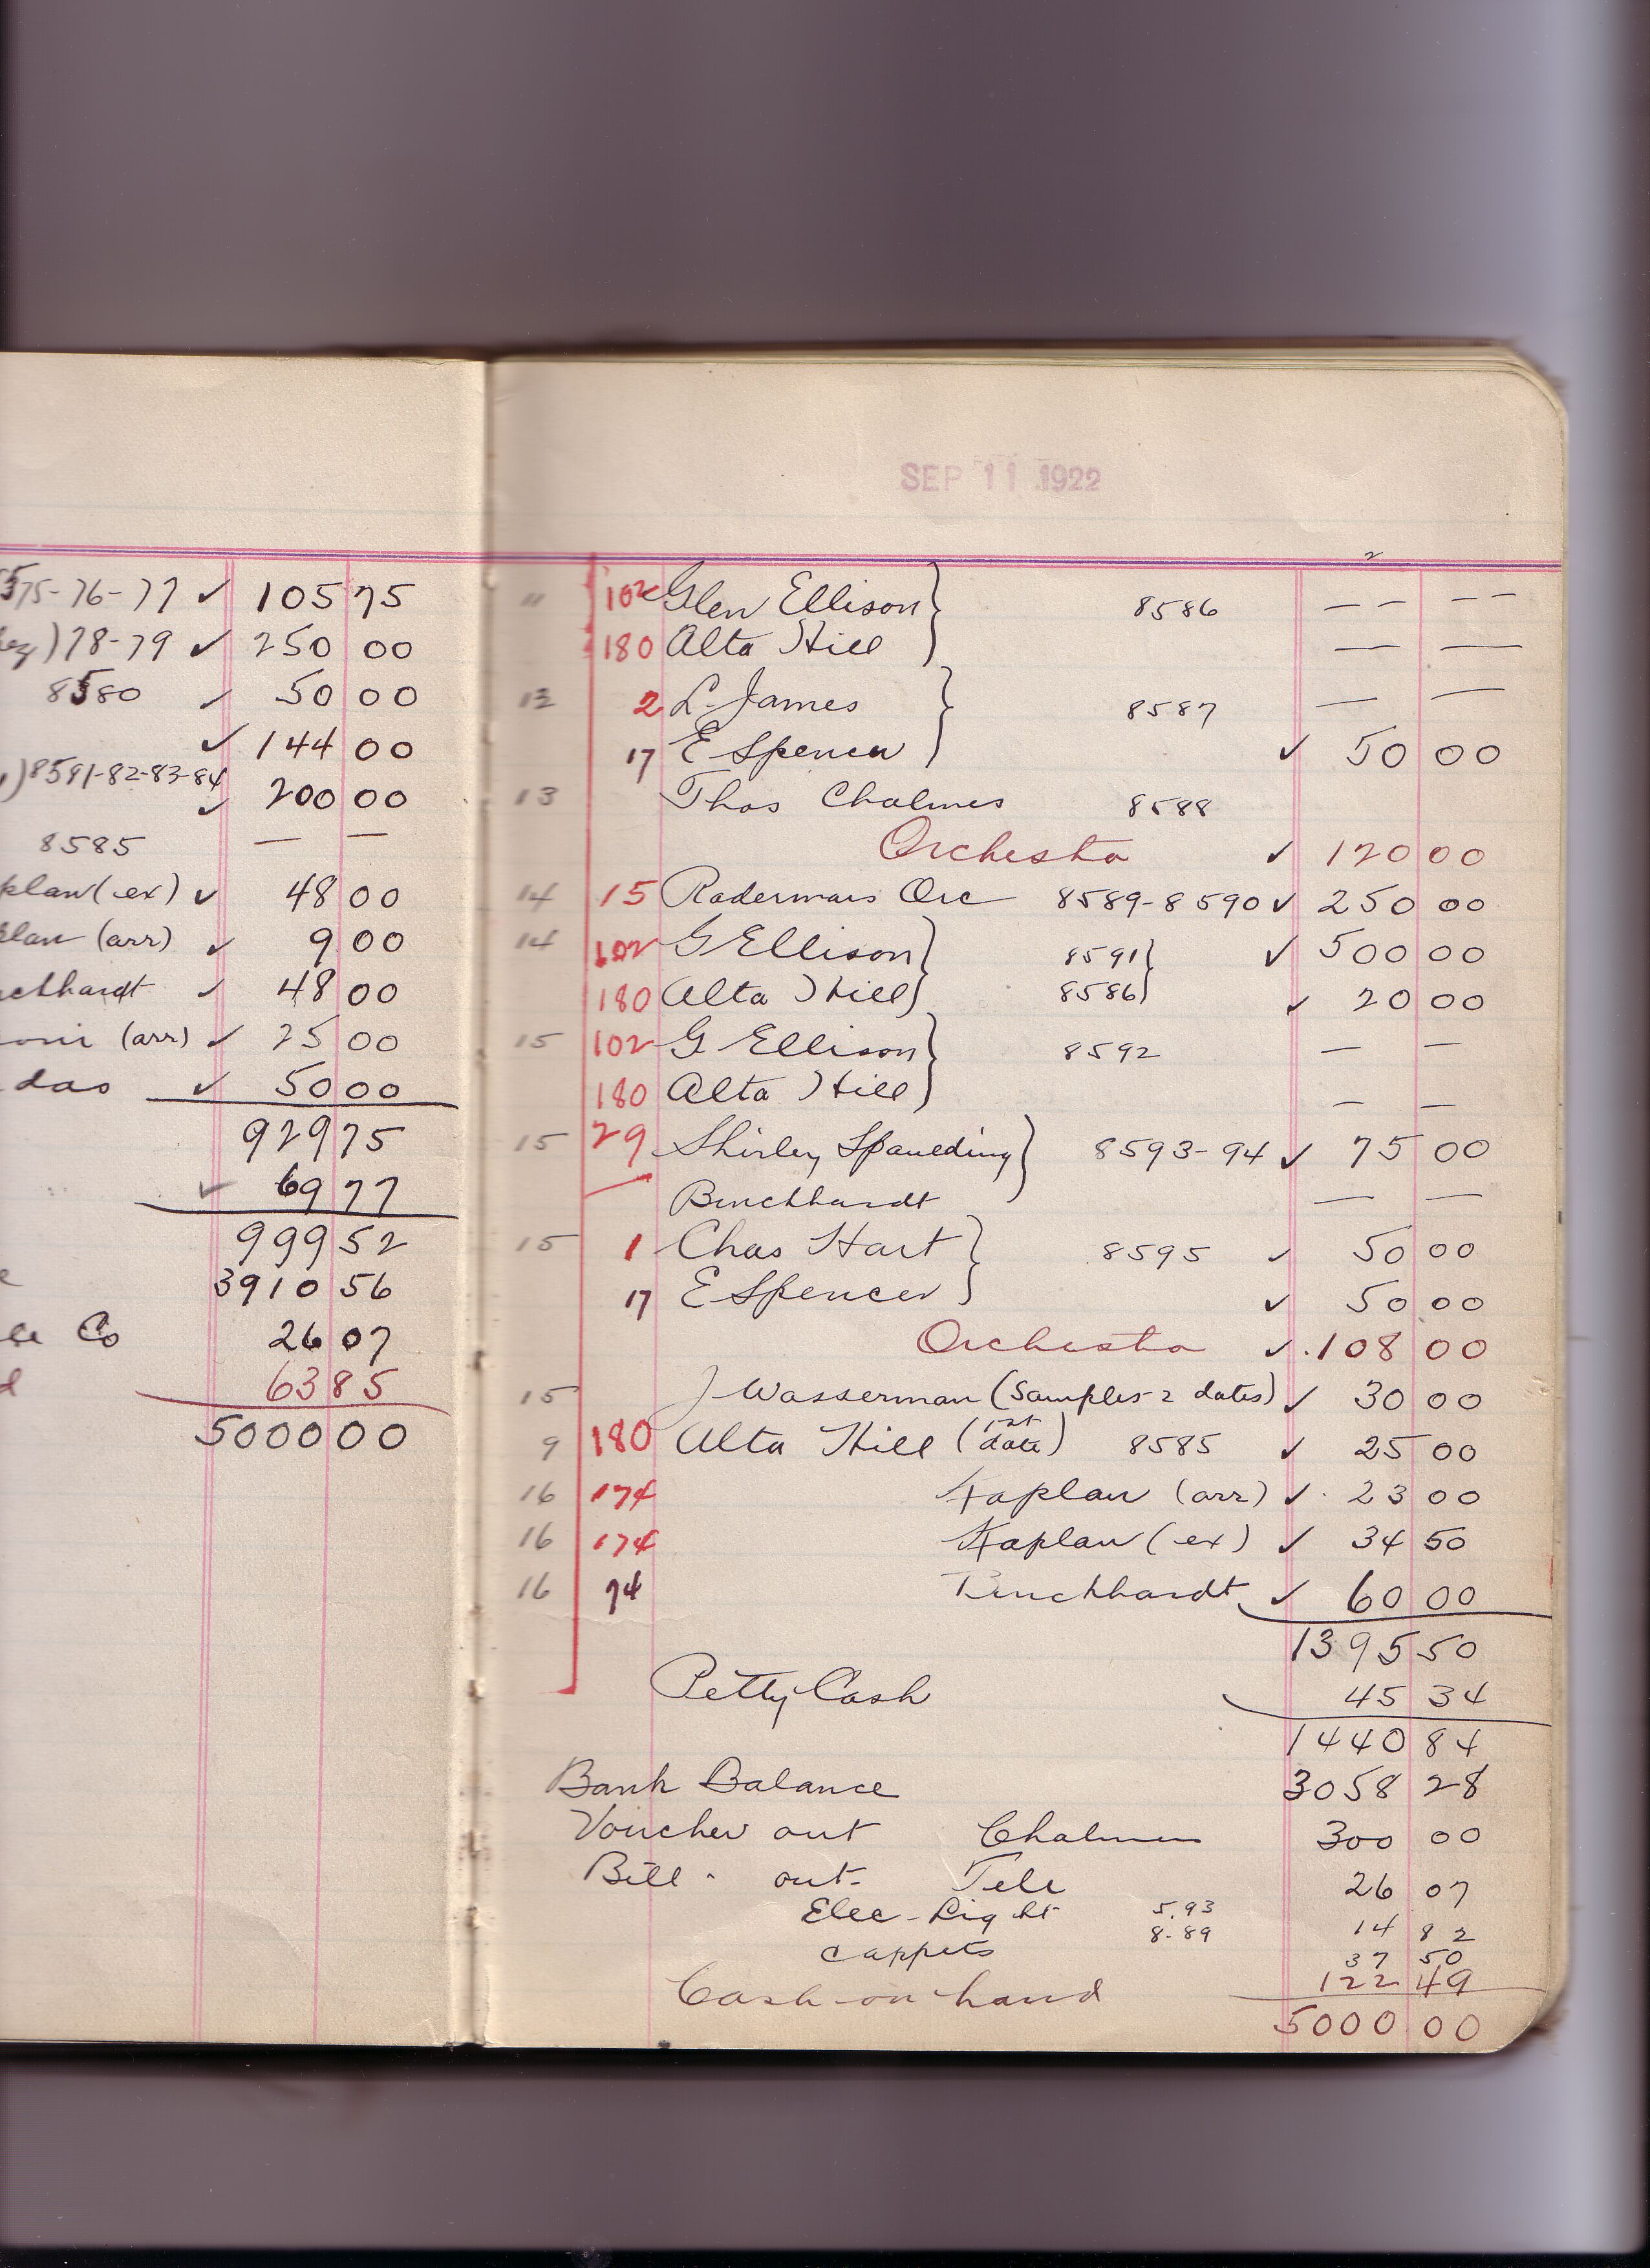 575-76-77 ✓ 105 75
) 78-79 ✓ 250 00
8580 ✓ 50 00
✓ 144 00
) 8581-82-83-84
✓ 200 00
8585 — —
plan (ex) ✓ 48 00
plan (arr) ✓ 9 00
chhardt ✓ 48 00
(arr) ✓ 25 00
das ✓ 50 00
929 75
✓ 69 77
999 52
3910 56
Co 26 07
63 85
5000 00
SEP 11 1922
11 102 Glen Ellison } 8586 — — — —
180 Alta Hill } — —
12 2 L. James } 8587 — —
17 E Spencer } ✓ 50 00
13 Thos Chalmers 8588
Orchestra ✓ 120 00
14 15 Radermans Orc 8589-8590 ✓ 250 00
14 102 G Ellison } 8591 } ✓ 500 00
180 Alta Hill } 8586 } ✓ 20 00
15 102 G Ellison } 8592 — —
180 Alta Hill } — —
15 29 Shirley Spaulding } 8593-94 ✓ 75 00
Burckhardt — —
15 1 Chas Hart } 8595 ✓ 50 00
17 E Spencer } ✓ 50 00
Orchestra ✓ 108 00
15 J Wasserman (Samples-2 dates) ✓ 30 00
9 180 Alta Hill (1st date) 8585 ✓ 25 00
16 174 Kaplan (arr) ✓ 23 00
16 174 Kaplan (ex) ✓ 34 50
16 74 Burckhardt ✓ 60 00
1395 50
Petty Cash 45 34
1440 84
Bank Balance 3058 28
Voucher out Chalmers 300 00
Bill " out- Tele 26 07
Elec-Light 5.93
8.89 14 82
carpets 37 50
Cash on hand 122 49
5000 00